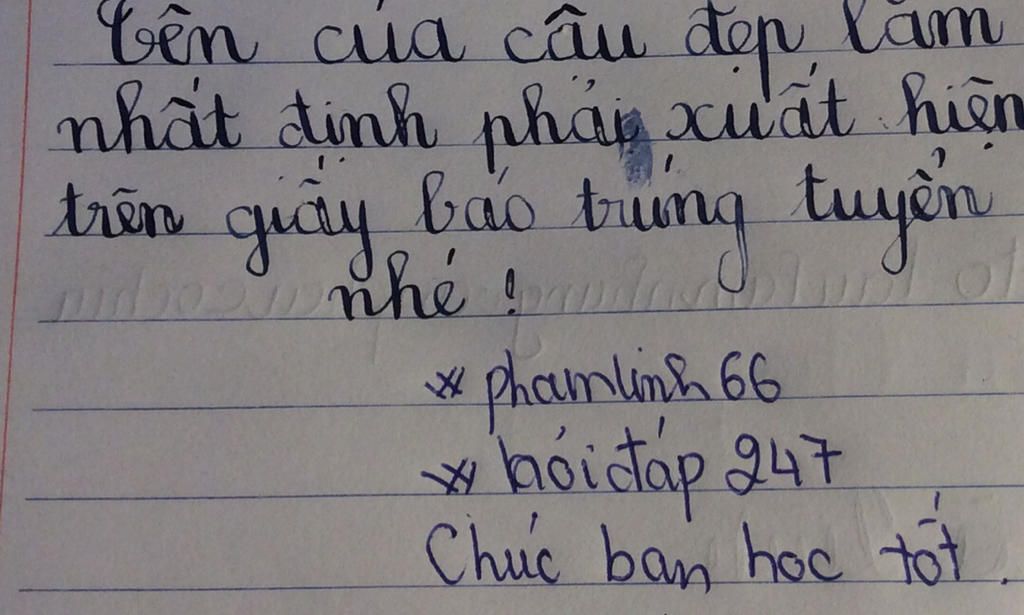 tên của cậu đẹp lắm
nhất định phải xuất hiện
trên giấy báo trúng tuyển
nhé !
phamlinh 66
hỏi đáp 247
Chúc bạn học tốt .